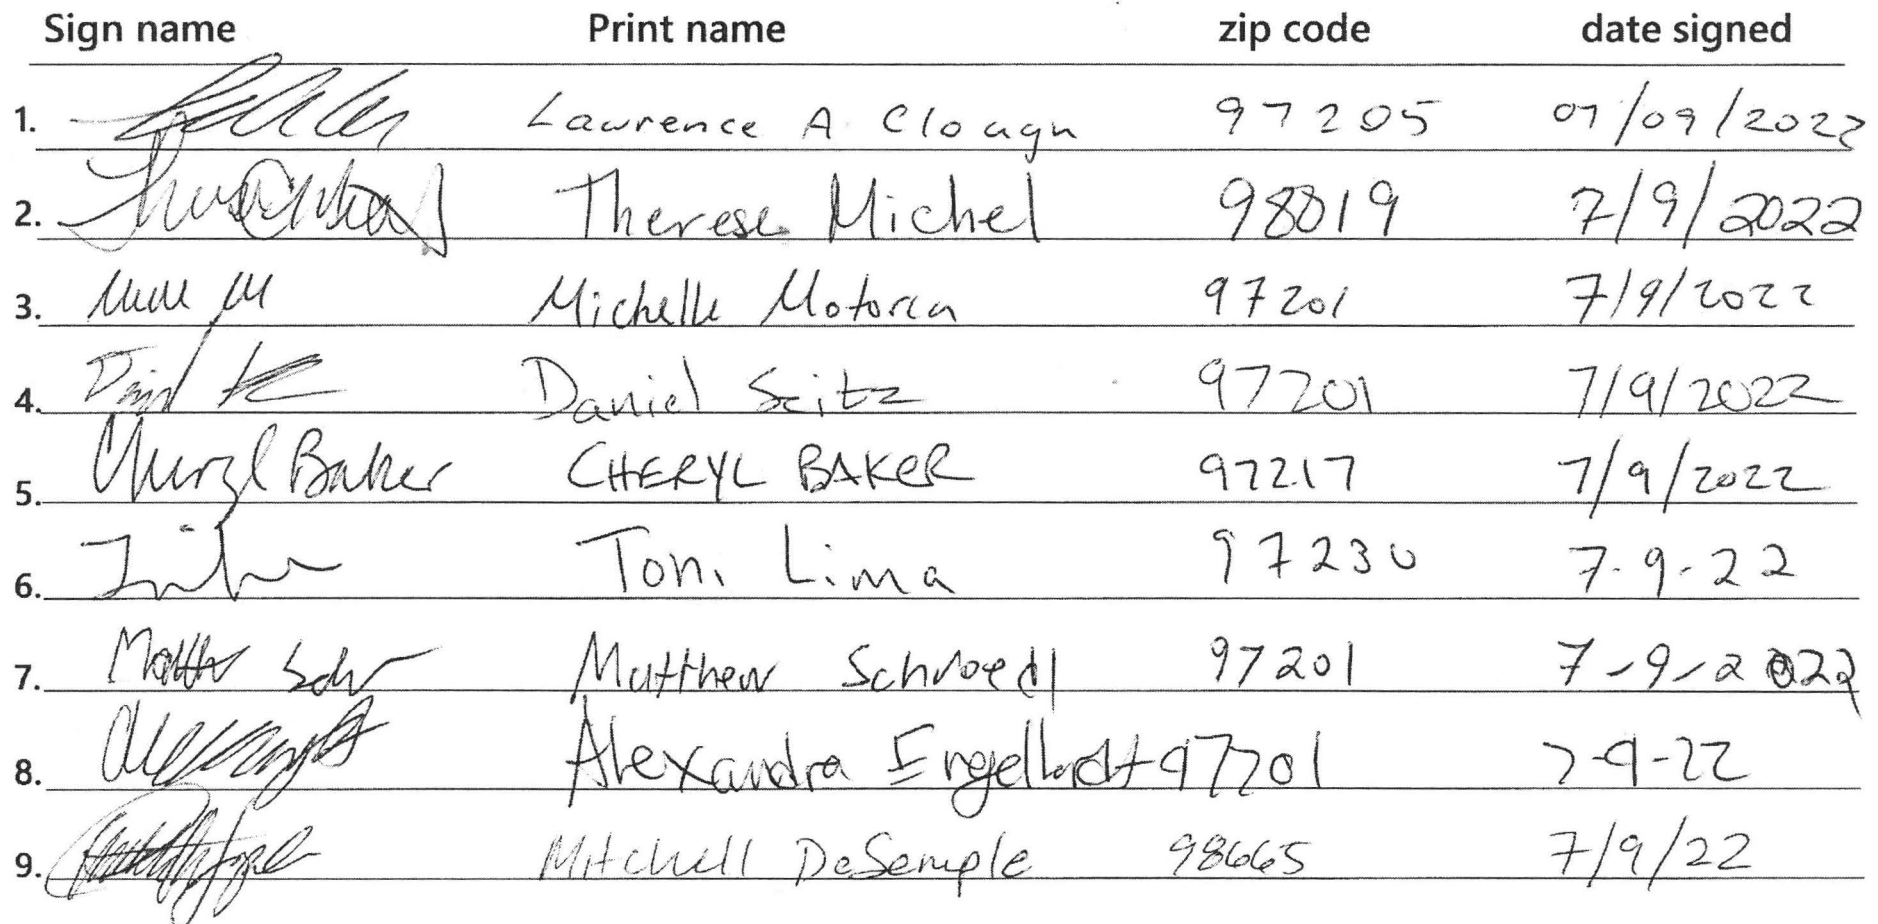 Sign name Print name zip code date signed
1. Lawrence A Clough 97205 07/09/2022
2. Therese Michel 98819 7/9/2022
3. Michelle 97201 7/9/2022
4. Daniel Seitz 97201 7/9/2022
5. Cheryl Baker CHERYL BAKER 97217 7/9/2022
6. Toni Lima 97230 7-9-22
7. Matthew Schroedl 97201 7-9-2022
8. Alexandra Engelhardt 97201 7-9-22
9. Mitchell DeSemple 98665 7/9/22